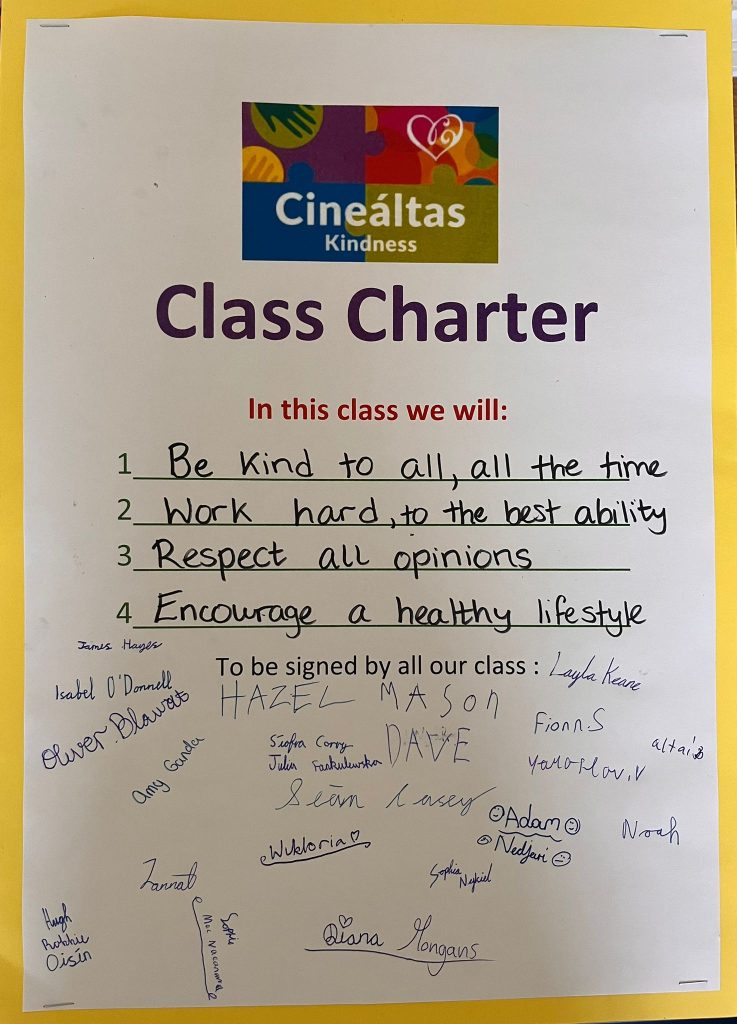 Cineáltas
Kindness
Class Charter
In this class we will:
1 Be Kind to all, all the time
2 Work hard, to the best ability
3 Respect all opinions
4 Encourage a healthy lifestyle
James Hayes
To be signed by all our class : Layla Keane
Isabel O'Donnell
HAZEL MASON
Oliver Blowatt
Fionn.S
Amy Ganda
Síofra Corry
DAVE
altai
Julia
Yaroslav.V
Seán Casey
Adam
Noah
Nedjari
Wiktoria
Sophia
Zannat
Hugh
Robbie
Oisín
Sophie
Diana Mongans